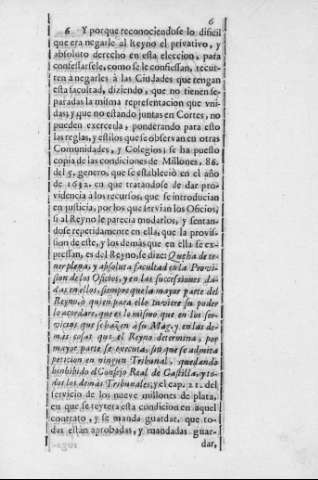 6
6 Y porque reconociendose lo dificil
que era negarle al Reyno el privativo, y
absoluto derecho en esta eleccion, para
confessarsele, como se le confiessan, recur-
ren à negarles à las Ciudades que tengan
esta facultad, diziendo, que no tienen se-
paradas la misma representacion que vni-
das, y que no estando juntas en Cortes, no
pueden exercerla, ponderando para esto
las reglas, y estilos que se observan en otras
Comunidades, y Colegios; se ha puesto
copia de las condiciones de Millones, 86.
del 5. genero, que se estableciò en el año
de 1632. en que tratandose de dar pro-
videncia à los recursos, que se introducian
en justicia, por los que servian los Oficios,
si al Reyno le parecia mudarlos, y sentan-
dose repetidamente en ella, que la provis-
sion de este, y los demàs que en ella se ex-
pressan, es del Reyno, se dize: Que ha de te-
ner plena, y absoluta facultad en la Provi-
sion de los Oficios, y en las successiones da-
das en ellos, siempre que la mayor parte del
Reyno, ò quien para ello tuviere su poder
lo acordare, que es lo mismo que en los ser-
vicios que se hazen à su Mag. y en las de-
màs cosas que el Reyno determina, por
mayor parte se executa, sin que se admita
peticion en ningun Tribunal, quedando
inhibido el Consejo Real de Castilla, y to-
dos los demàs Tribunales; y el cap. 21. del
servicio de los nueve millones de plata,
en que se reytera esta condicion en aquel
contrato, y se manda guardar, que to-
das estàn aprobadas, y mandadas guar-
dar,